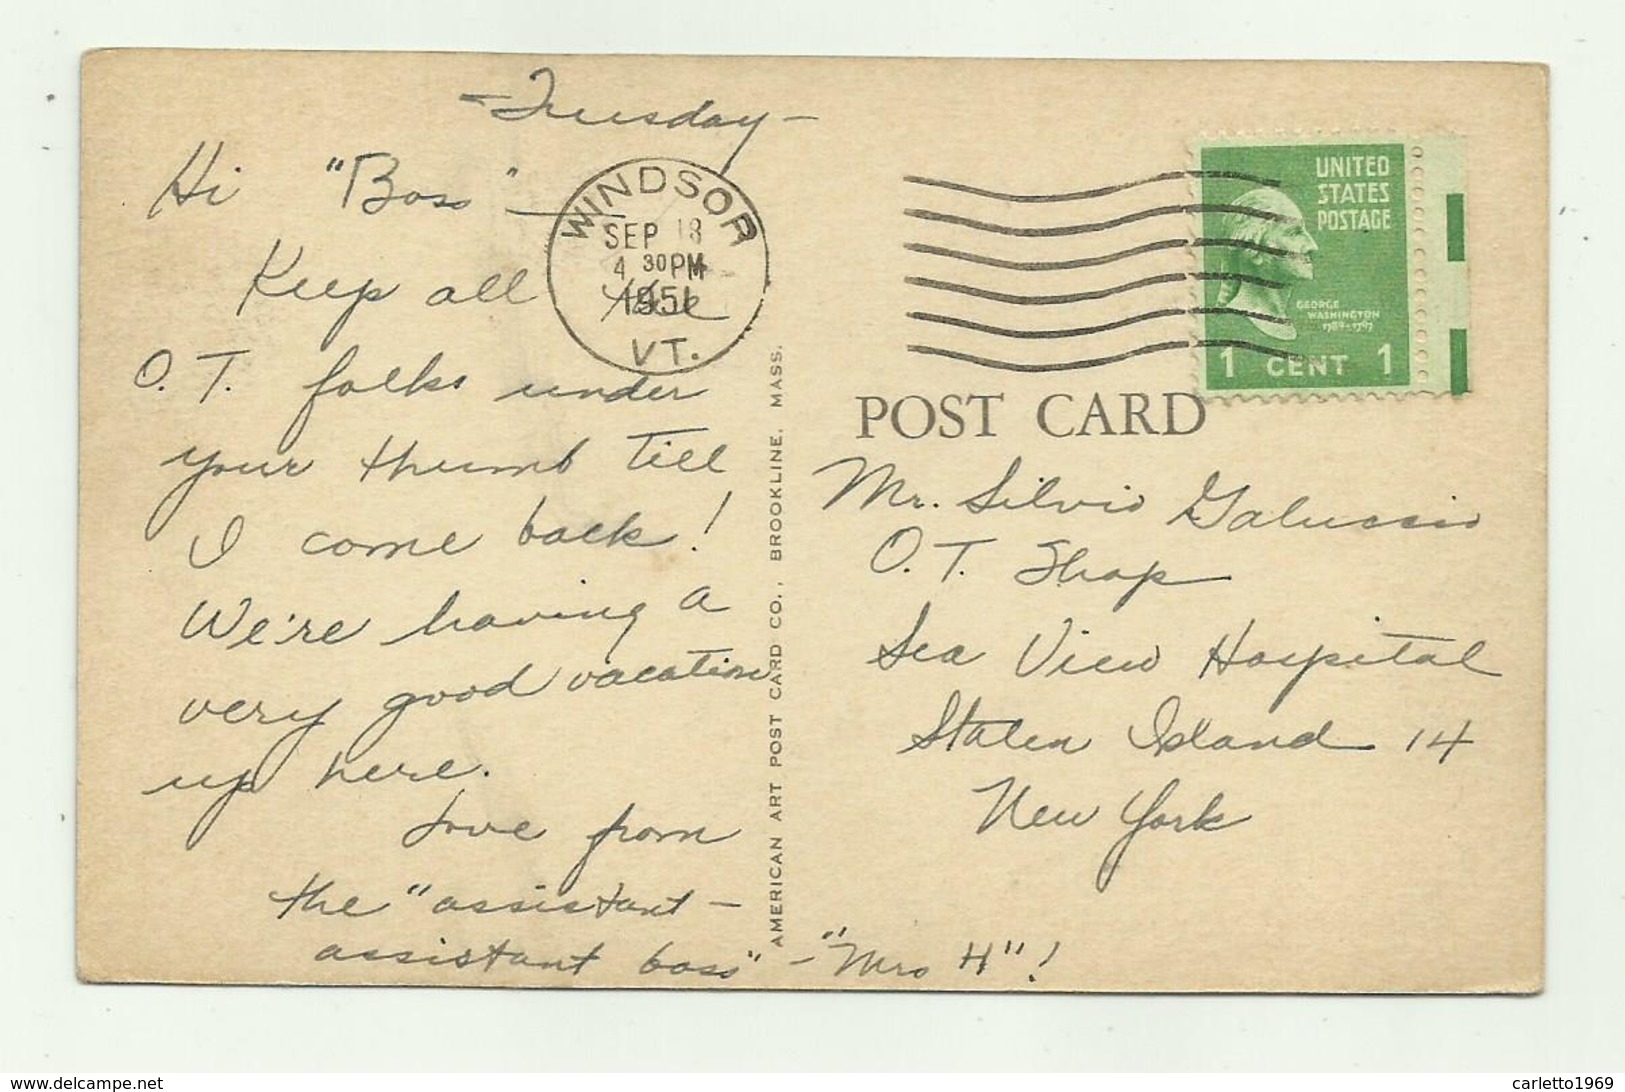 - Tuesday -
Hi "Boss" -
Keep all
O. T. folks under
your thumb till
I come back!
We're having a
very good vacation
up here.
Love from
the "assistant -
assistant boss" - "Mrs H"!
WINDSOR
SEP 18
4 30 PM
1951
VT.
AMERICAN ART POST CARD CO., BROOKLINE, MASS.
UNITED
STATES
POSTAGE
GEORGE
WASHINGTON
1789-1797
1 CENT 1
POST CARD
Mr. Silvio Galussio
O. T. Shop
Sea View Hospital
Staten Island 14
New York
www.delcampe.net
carletto1969